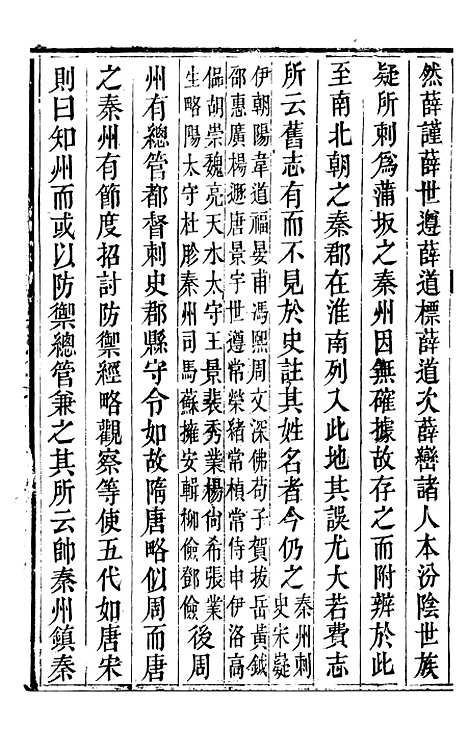 然薛謹薛世遵薛道標薛道次薛巒諸人本汾陰世族
疑所刺爲蒲坂之秦州因無確據故存之而附辨於此
至南北朝之秦郡在淮南列入此地其誤尤大若費志
所云舊志有而不見於史註其姓名者今仍之秦州刺史宋嶷
伊朝陽韋道福晏甫馮熙周文深佛荀子賀拔岳黃鉞
邵惠廣楊遜唐景宇世遵常榮緒常楨常侍申伊洛高
偒胡崇魏亮天水太守王景裴秀業楊尙希張業
生略陽太守杜彤秦州司馬蘇擁安輯柳儉鄧儉後周
州有總管都督刺史郡縣守令如故隋唐略似周而唐
之秦州有節度招討防禦經略觀察等使五代如唐宋
則曰知州而或以防禦總管兼之其所云帥秦州鎮秦